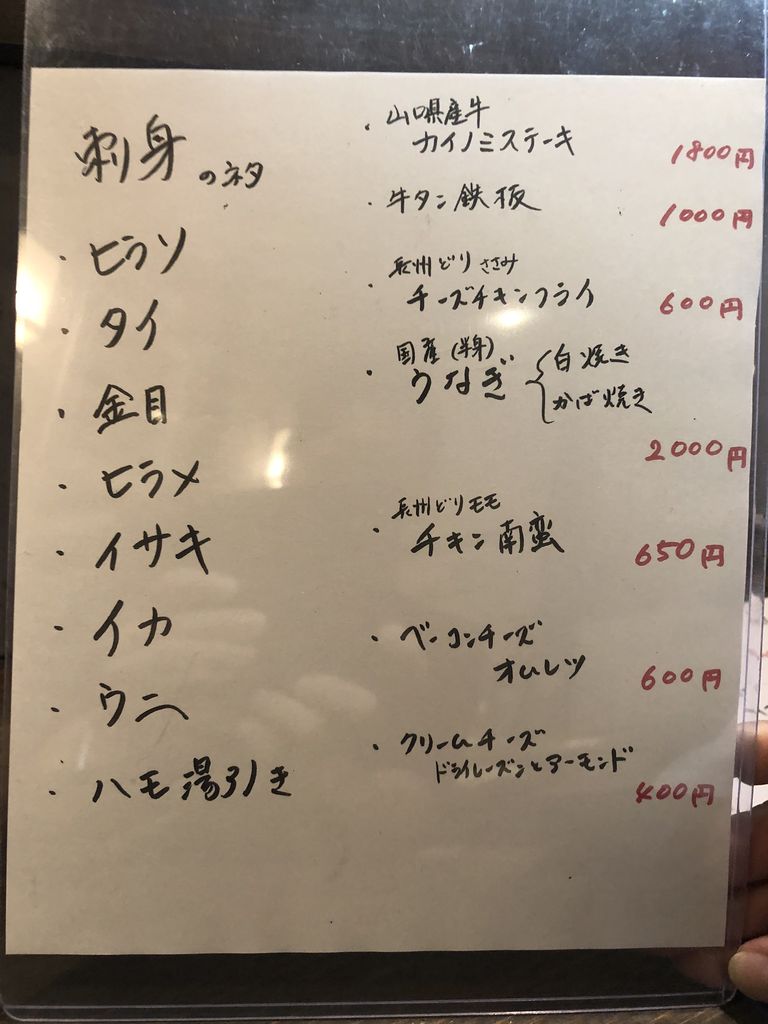 刺身のネタ
・ヒラソ
・タイ
・金目
・ヒラメ
・イサキ
・イカ
・ウニ
・ハモ湯引き
・山口県産牛
カイノミステーキ
1800円
・牛タン鉄板
1000円
長州どりささみ
・チーズチキンフライ
600円
国産(半身)
・うなぎ { 白焼き
かば焼き
2000円
長州どりモモ
・チキン南蛮
650円
・ベーコンチーズ
オムレツ
600円
・クリームチーズ
ドライレーズンとアーモンド
400円